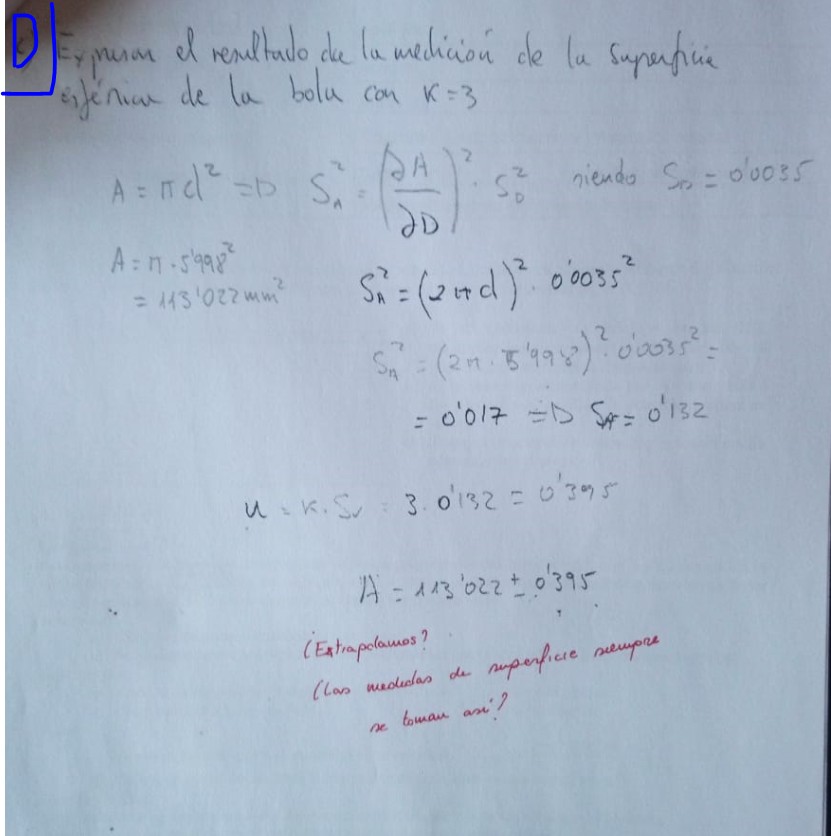 D) Expresar el resultado de la medición de la superficie
esférica de la bola con K=3
A = πd² =D S_A² = (∂A/∂D)² · S_D² siendo S_D = 0'0035
A = π·5'998²
= 113'022 mm²
S_A² = (2πd)² · 0'0035²
S_A² = (2π·5'998)²·0'0035² =
= 0'017 =D S_A = 0'132
u = K·S_v = 3·0'132 = 0'395
A = 113'022 ± 0'395
¿Extrapolamos?
¿Las medidas de superficie siempre
se toman así?